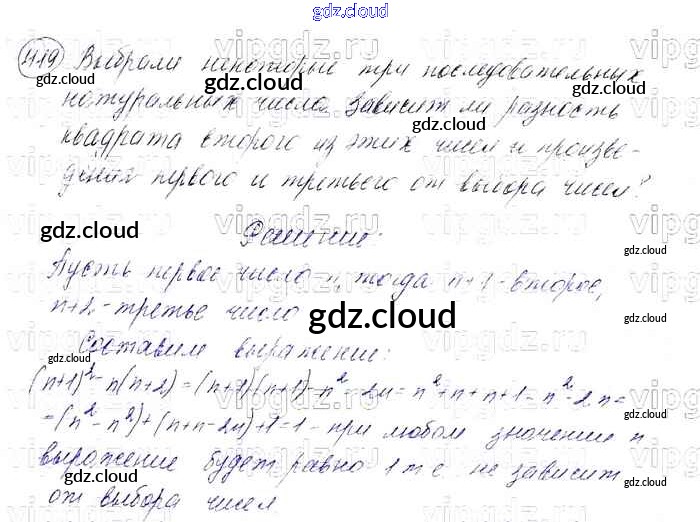 gdz.cloud
419 Выбрали некоторые три последовательных
натуральных числа. Зависит ли разность
квадрата второго из этих чисел и произве-
дения первого и третьего от выбора чисел?
Решение:
Пусть первое число n, тогда n+1 - второе,
n+2 - третье число
Составим выражение:
(n+1)² - n(n+2) = (n+1)(n+1) - n² - 2n = n² + n + n + 1 - n² - 2n =
= (n² - n²) + (n+n-2n) + 1 = 1 - при любом значении n
выражение будет равно 1 т е не зависит
от выбора чисел
gdz.cloud
gdz.cloud
gdz.cloud
gdz.cloud
gdz.cloud
gdz.cloud
gdz.cloud
gdz.cloud
gdz.cloud
gdz.cloud
gdz.cloud
gdz.cloud
vipgdz.ru